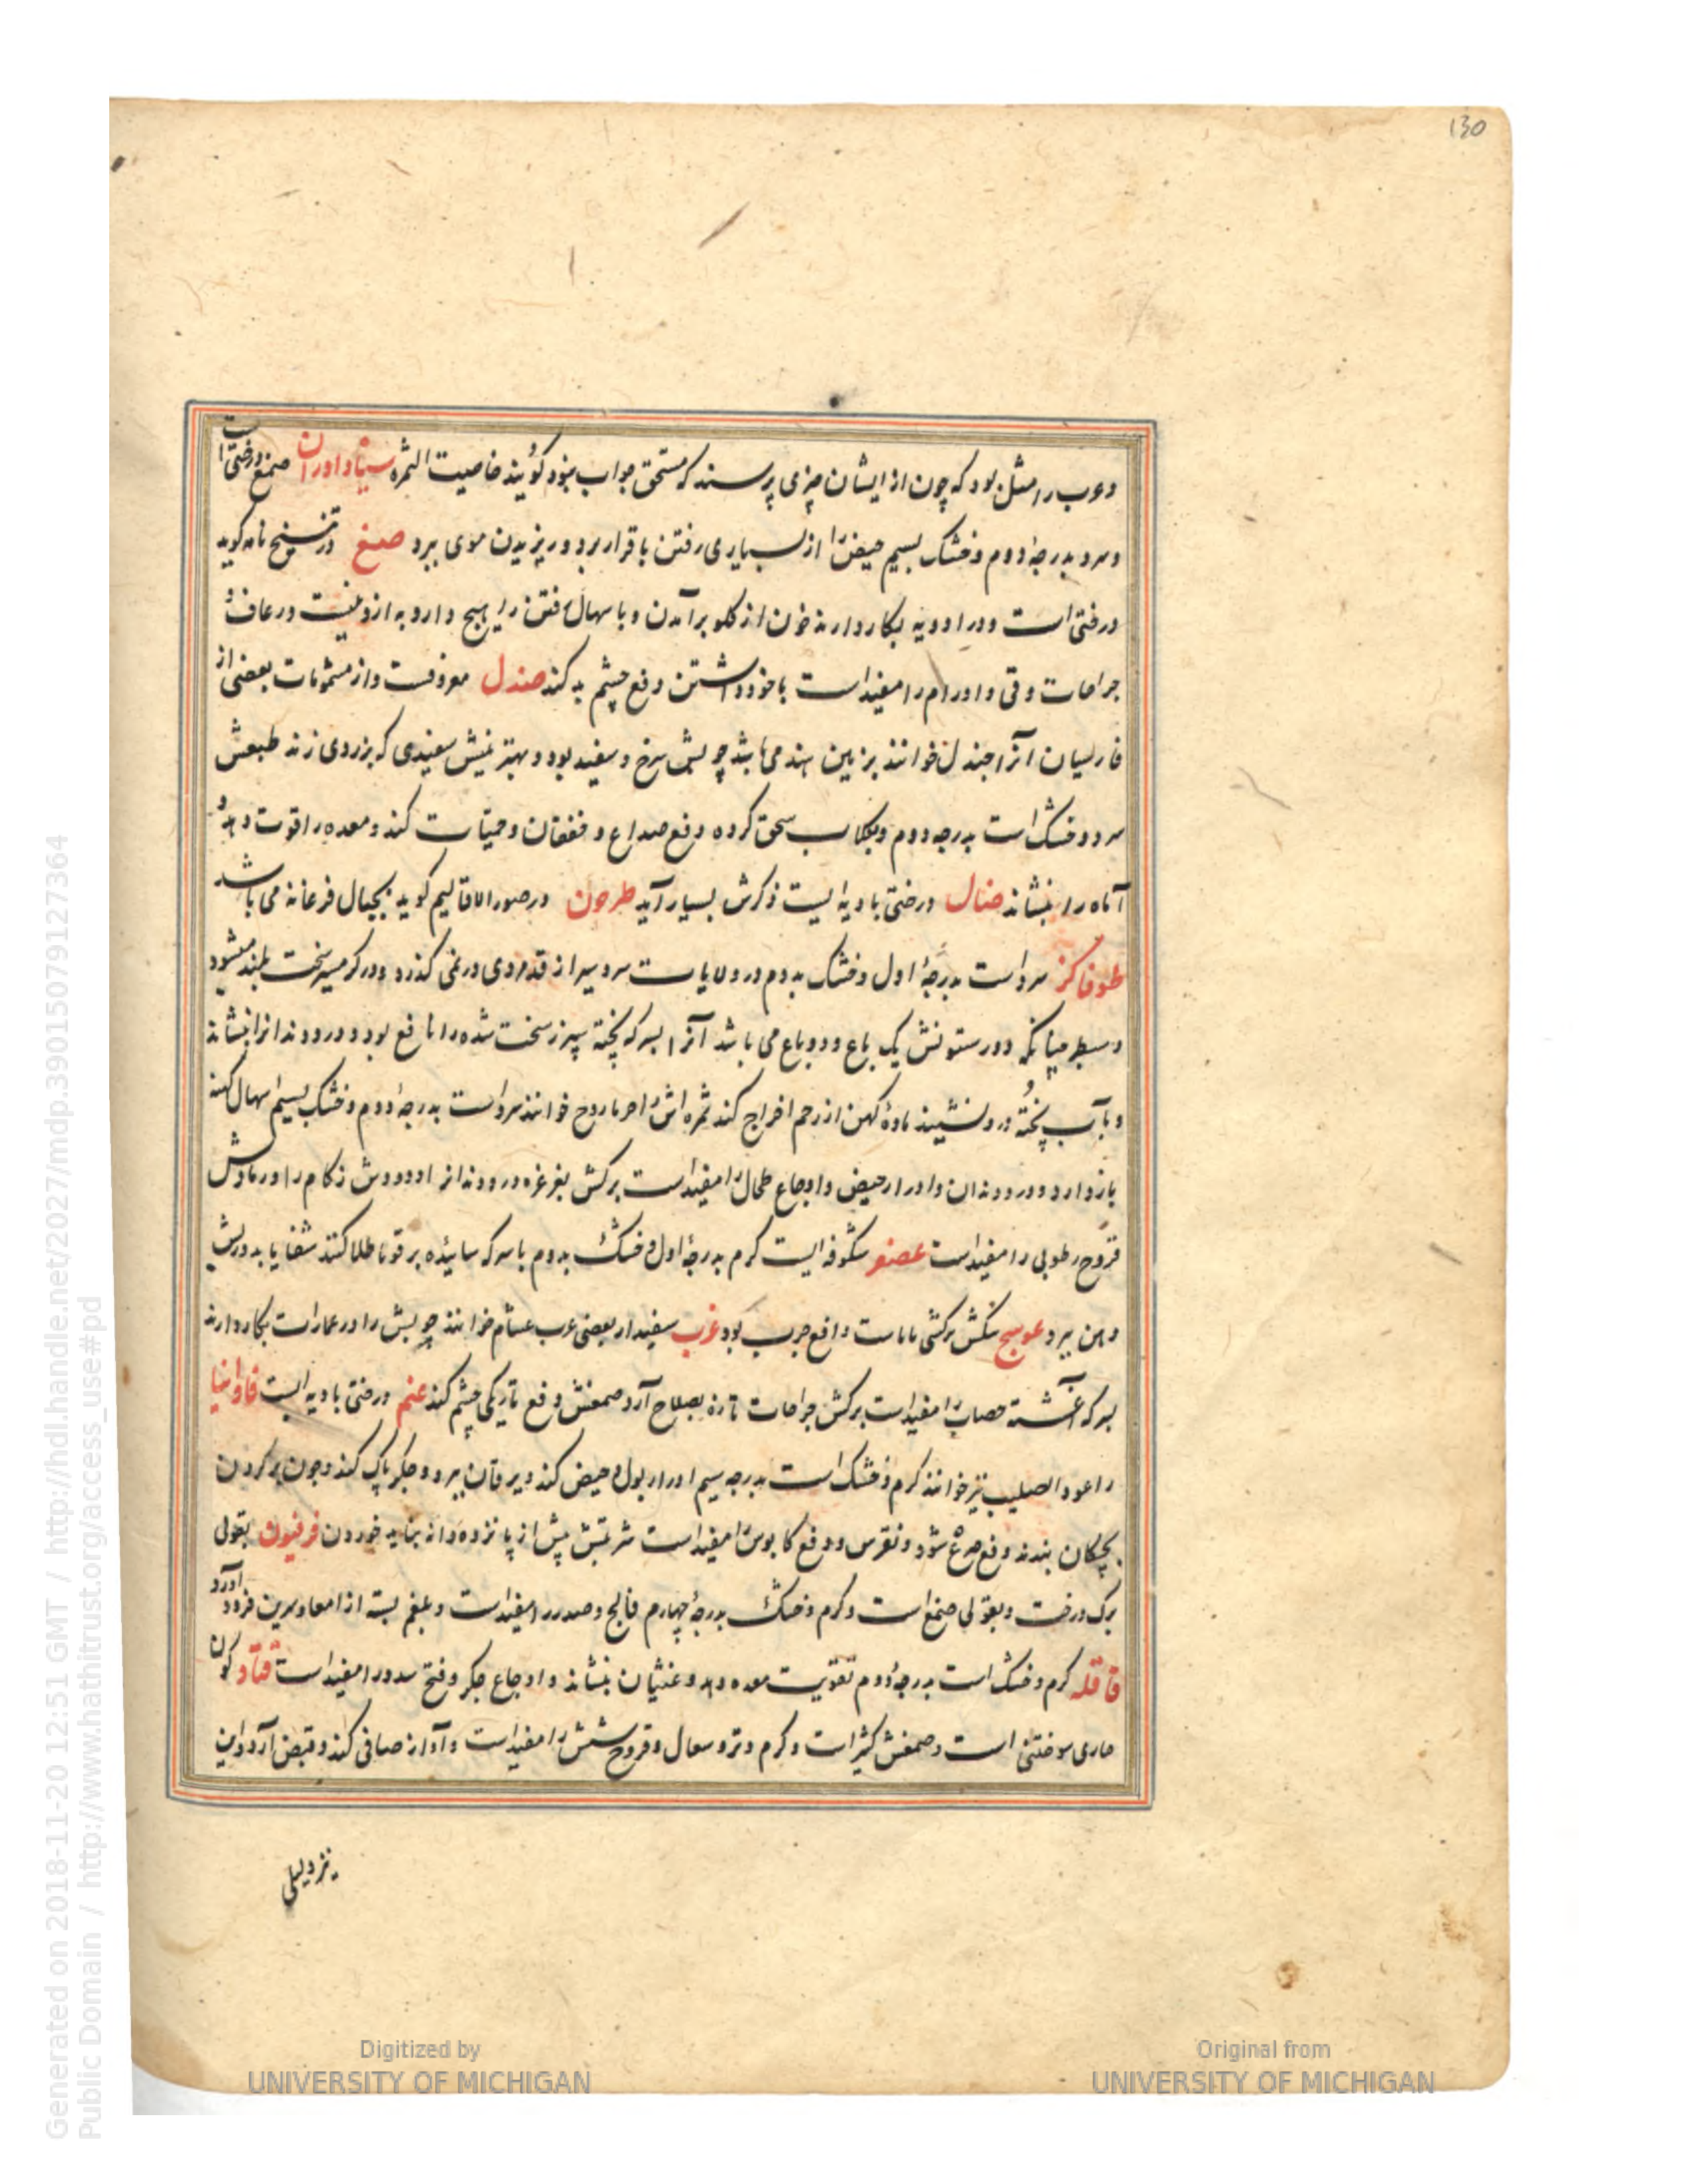 130
و عرب را مثل بود که چون از ایشان چیزی پرسند که مستحق جواب نبود گویند خاصیت الثمره سیاداوران صمغ درختی است
و سرد بدرجهٔ دوم و خشک بسیم حیض را از بسیاری رفتن باقرار برد و ریزیدن موی ببرد صمغ در تنسخ نامه گوید
درختی است و در ادویه بکار دارند خون از گلو برآمدن و باسهال رفتن را هیچ دارو به ازو نیست و رعاف و
جراحات و قی و اورام را مفید است با خود داشتن دفع چشم بد کند صندل معروفست و از مشمومات بعضی از
فارسیان آنرا جندل خوانند بزمین هند می باشد چوبش سرخ و سفید بود و بهترینش سفیدی که بزردی زند طبعش
سرد و خشک است بدرجه دوم و بگلاب سحق کرده دفع صداع و خفقان و حمیات کند و معده را قوت دهد و
آماه را بنشاند ضال درختی بادیه ایست ذکرش بسیار آید طرخون در صور الاقالیم گوید بجبال فرغانه می باشد
طوفا کز سرد است بدرجهٔ اول و خشک بدوم در ولایات سردسیر از قد مردی در نمی گذرد و در گرمسیر سخت بلند میشود
و سطبر چنانکه دور ستونش یک باع و دو باع می باشد آنرا بسرکه پخته سپرز سخت شده را نافع بود و درد دندانرا بنشاند
و بآب پخته درو نشینند مادهٔ کهن از رحم اخراج کند ثمره اش را خوانند سرد است بدرجهٔ دوم و خشک بسیم اسهال کهنه
باز دارد و درد دندان و ادرار حیض و اوجاع طحال را مفید است برکش بغرغره درد دندانرا و دودش زکام را و رمادش
قروح رطوبی را مفید است عصفر شکوفه ایست گرم بدرجهٔ اول و خشک بدوم با سرکه سائیده بر قوبا طلا کنند شفا یابد و ریش
دهن ببرد عوسج دافع جرب بود غرب سفیدار بعضی عرب عشام خوانند چوبش را در عمارات بکار دارند
بسرکه آغشته را مفید است برکش جراحات تازه بصلاح آرد صمغش دفع تاریکی چشم کند عنم درختی بادیه ایست فاوانیا
را عود الصلیب نیز خوانند گرم و خشک است بدرجه سیم ادرار بول و حیض کند و یرقان ببرد و جگر پاک کند و چون بر گردن
بچگان بندند دفع صرع شود و نقرس و دفع کابوس را مفید است شربتش بیش از پانزده دانه نباید خوردن فرفیون بقولی
برک درخت و بقولی صمغ است و گرم و خشک بدرجهٔ چهارم فالج و صدر را مفید است و بلغم بسته از امعا و سرین فرود آورد
قاقله گرم و خشک است بدرجهٔ دوم تقویت معده دهد و غثیان بنشاند و اوجاع جگر و فتح سدد را مفید است قتاد گون
خاری سوختنی است و صمغش کثیراست و گرم و تر و سعال و قروح شش را مفید است و آواز صافی کند و قبض آرد و این
نیز دلیلی
Digitized by
UNIVERSITY OF MICHIGAN
Original from
UNIVERSITY OF MICHIGAN
Generated on 2018-11-20 12:51 GMT / http://hdl.handle.net/2027/mdp.39015079127364
Public Domain / http://www.hathitrust.org/access_use#pd